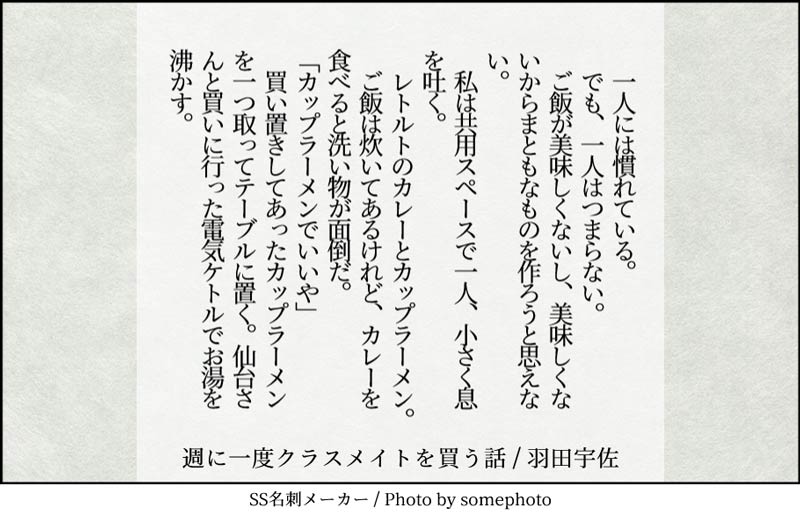 一人には慣れている。
でも、一人はつまらない。
ご飯が美味しくないし、美味しくな
いからまともなものを作ろうと思えな
い。
私は共用スペースで一人、小さく息
を吐く。
レトルトのカレーとカップラーメン。
ご飯は炊いてあるけれど、カレーを
食べると洗い物が面倒だ。
「カップラーメンでいいや」
買い置きしてあったカップラーメン
を一つ取ってテーブルに置く。仙台さ
んと買いに行った電気ケトルでお湯を
沸かす。
週に一度クラスメイトを買う話 / 羽田宇佐
SS名刺メーカー / Photo by somephoto